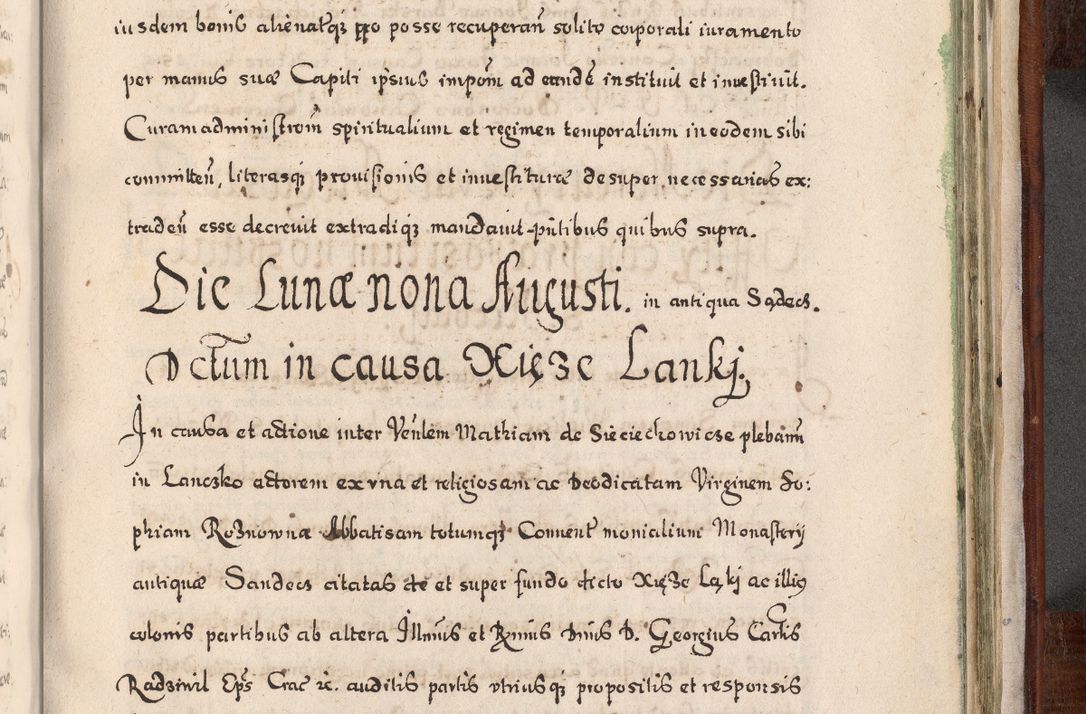 iusdem bonis alienatisq₃ pro posse recuperan̄ solito corporali iuramento
per manus suæ Capiti ip̄sius impom̄ ad eandē instituit et inuestiuit.
Curam administrom̄ spiritualium et regimen temporalium in eodem sibi
committen̄, literasq₃ prouisionis et inuestituræ desuper necessarias ex:
traden̄ esse decreuit extradiq₃ mandauit pn̄tibus quibus supra.
Die Lunæ nona Augusti. in antiqua Sądecz.
Actum in causa Xięze Lankj.
In causa et actione inter Ven̄lem Mathiam de Sieciechowicze pleban̄m
in Lanczko actorem ex vna et religiosam ac Deodicatam Virginem So:
phiam Roznowna Abbatisam totumq₃ Conuent̄ monialium Monasterij
antiquæ Sandecz citatas de et super fundo dicto Xięze Ląkj ac illius
colonis partibus ab altera Illm̄us et Rm̄us Dn̄us D. Georgius Car̄lis
Radziwil Ep̄s Crac ꝛc. auditis partis vtriusq₃ propositis et responsis